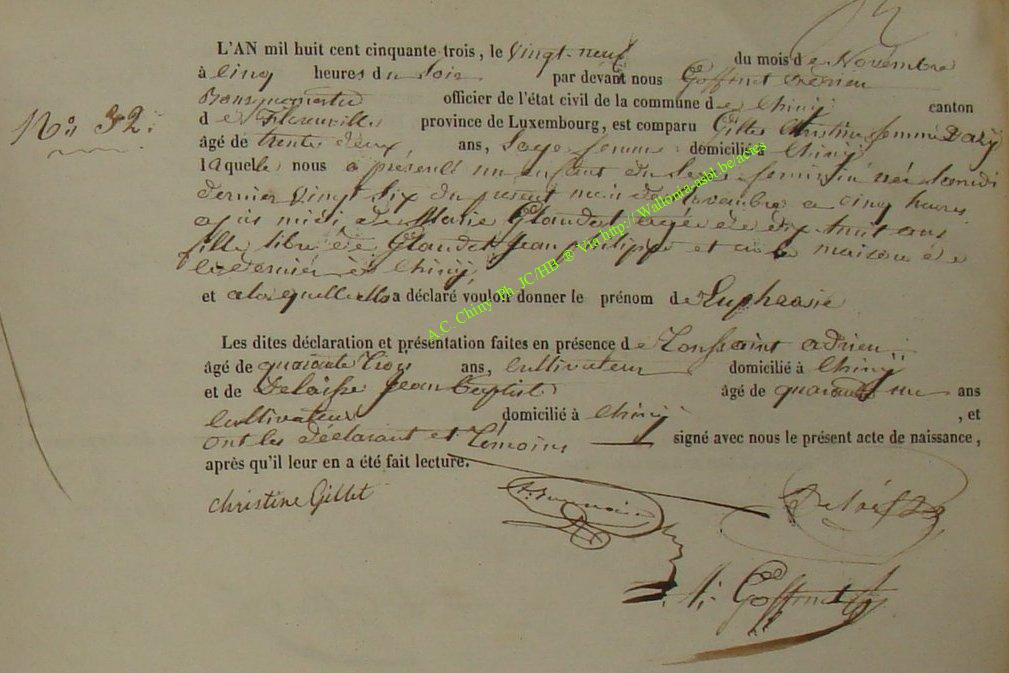 L'AN mil huit cent cinquante-trois, le vingt-neuf du mois de Novembre
à cinq heures du Soir par devant nous Goffinet
Bourgmestre officier de l'état civil de la commune de Chiny canton
de Florenville province de Luxembourg, est comparu Gillet Christine femme
No: 32:
âgé de trente deux ans, Sage femme domicilié à Chiny
laquelle nous a présenté un enfant du Sexe féminin né Samedi
dernier vingt six du présent mois de Novembre a cinq heures
après midi, de Marie Glaudet agée de dix huit ans
fille libre de Glaudet Jean philippe et en la maison de
ce dernier à Chiny,
et a laquelle elle a déclaré vouloir donner le prénom de Euphrasie
Les dites déclaration et présentation faites en présence de Toussaint adrien
âgé de quarante trois ans, Cultivateur domicilié à Chiny
et de Jean Baptist âgé de quarante un ans
Cultivateur domicilié à Chiny , et
ont les déclarant et Témoins signé avec nous le présent acte de naissance,
après qu'il leur en a été fait lecture.
Christine Gillet
A: Goffinet
A.C. Chiny Ph JC/HB @ Via http://Wallonia-asbl.be/actes